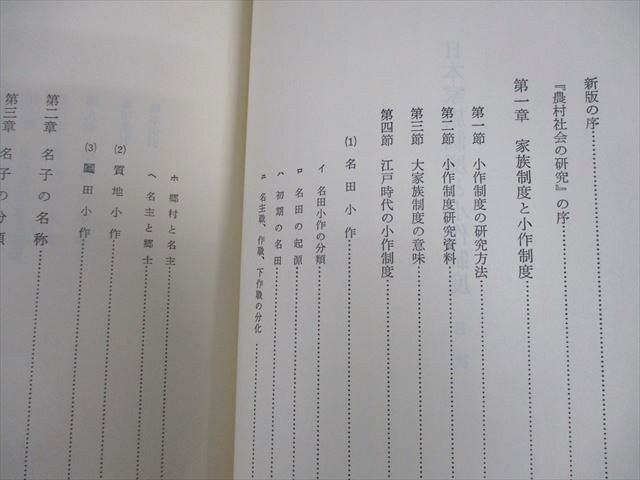 新版の序
『農村社会の研究』の序
第一章 家族制度と小作制度
第一節 小作制度の研究方法
第二節 小作制度研究資料
第三節 大家族制度の意味
第四節 江戸時代の小作制度
(1) 名田小作
イ 名田小作の分類
ロ 名田の起源
ハ 初期の名田
ニ 名主職、作職、下作職の分化
ホ 郷村と名主
ヘ 名主と郷士
(2) 質地小作
(3) 田小作
第二章 名子の名称
第三章 名子の分類